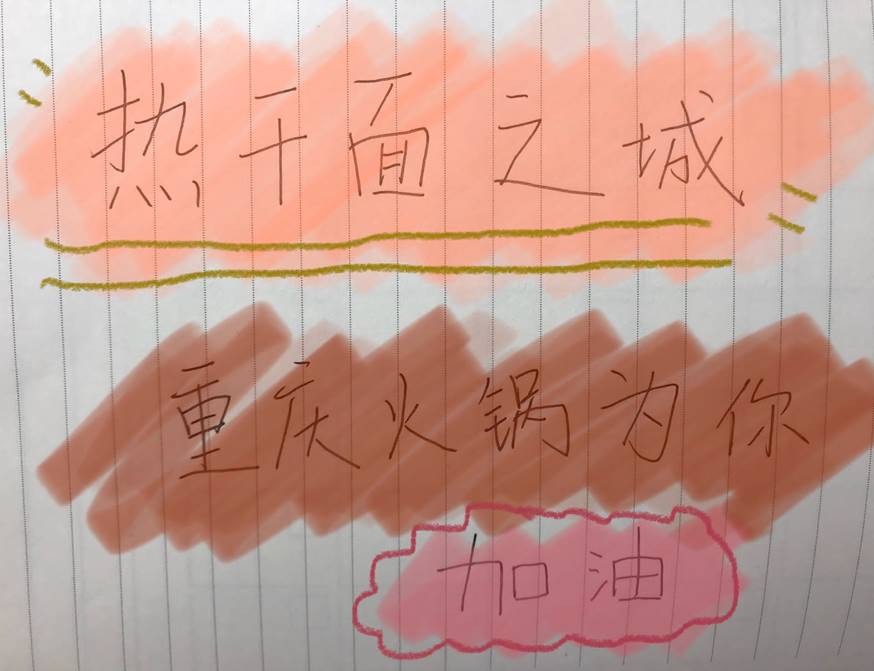 热干面之城
重庆火锅为你
加油